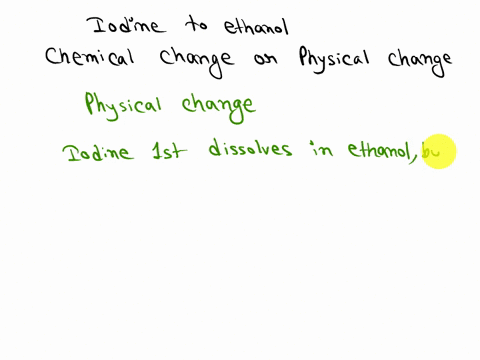 Iodine to ethanol
Chemical Change or Physical change
Physical change
Iodine 1st dissolves in ethanol,